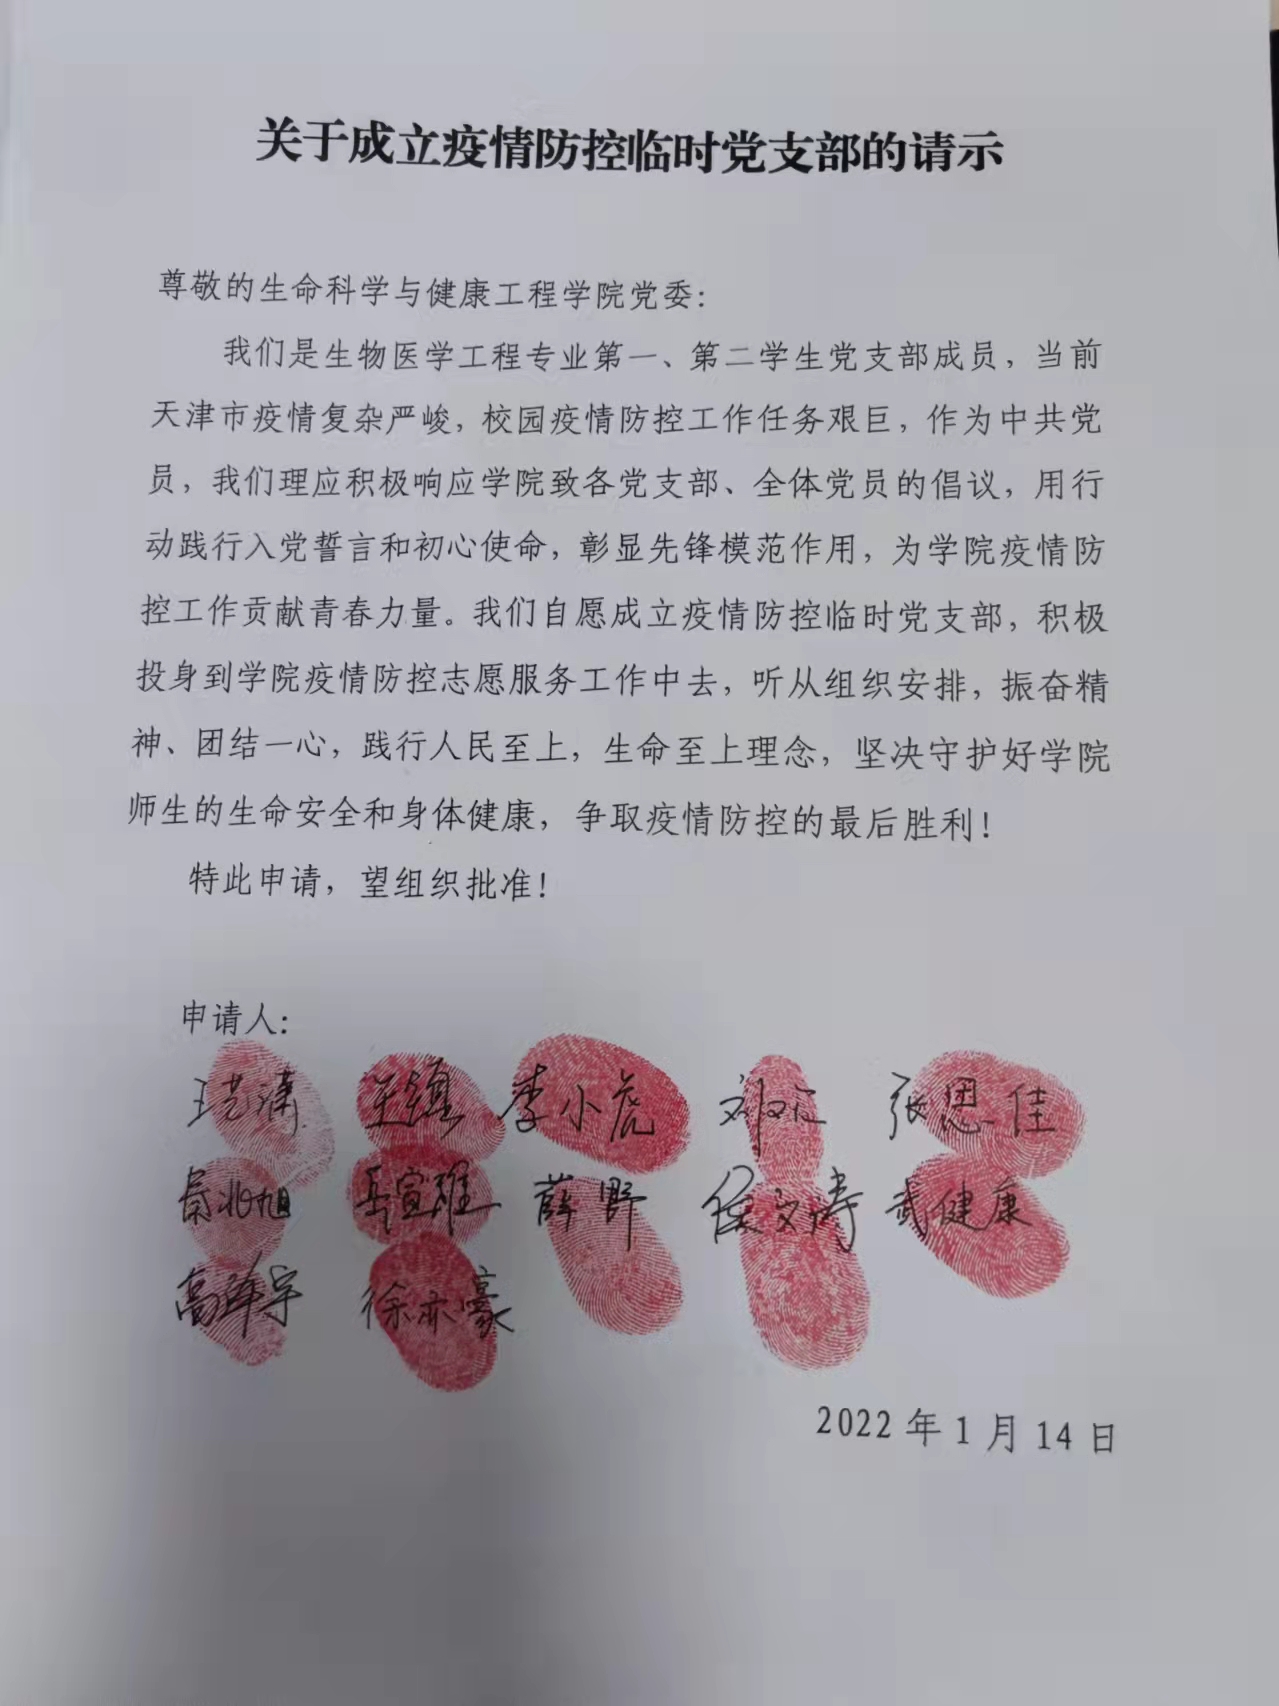 关于成立疫情防控临时党支部的请示
尊敬的生命科学与健康工程学院党委：
我们是生物医学工程专业第一、第二学生党支部成员，当前
天津市疫情复杂严峻，校园疫情防控工作任务艰巨，作为中共党
员，我们理应积极响应学院致各党支部、全体党员的倡议，用行
动践行入党誓言和初心使命，彰显先锋模范作用，为学院疫情防
控工作贡献青春力量。我们自愿成立疫情防控临时党支部，积极
投身到学院疫情防控志愿服务工作中去，听从组织安排，振奋精
神、团结一心，践行人民至上，生命至上理念，坚决守护好学院
师生的生命安全和身体健康，争取疫情防控的最后胜利！
特此申请，望组织批准！
申请人：
李小虎 张恩佳
秦兆旭 岳宣雅 薛野 侯文涛 武健康
高泽宇 徐亦豪
2022 年 1 月 14 日